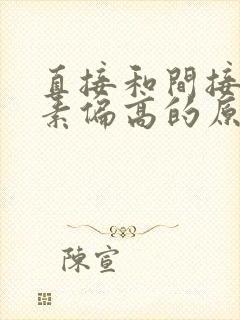 直接和間接
素偏高的原
陳宣